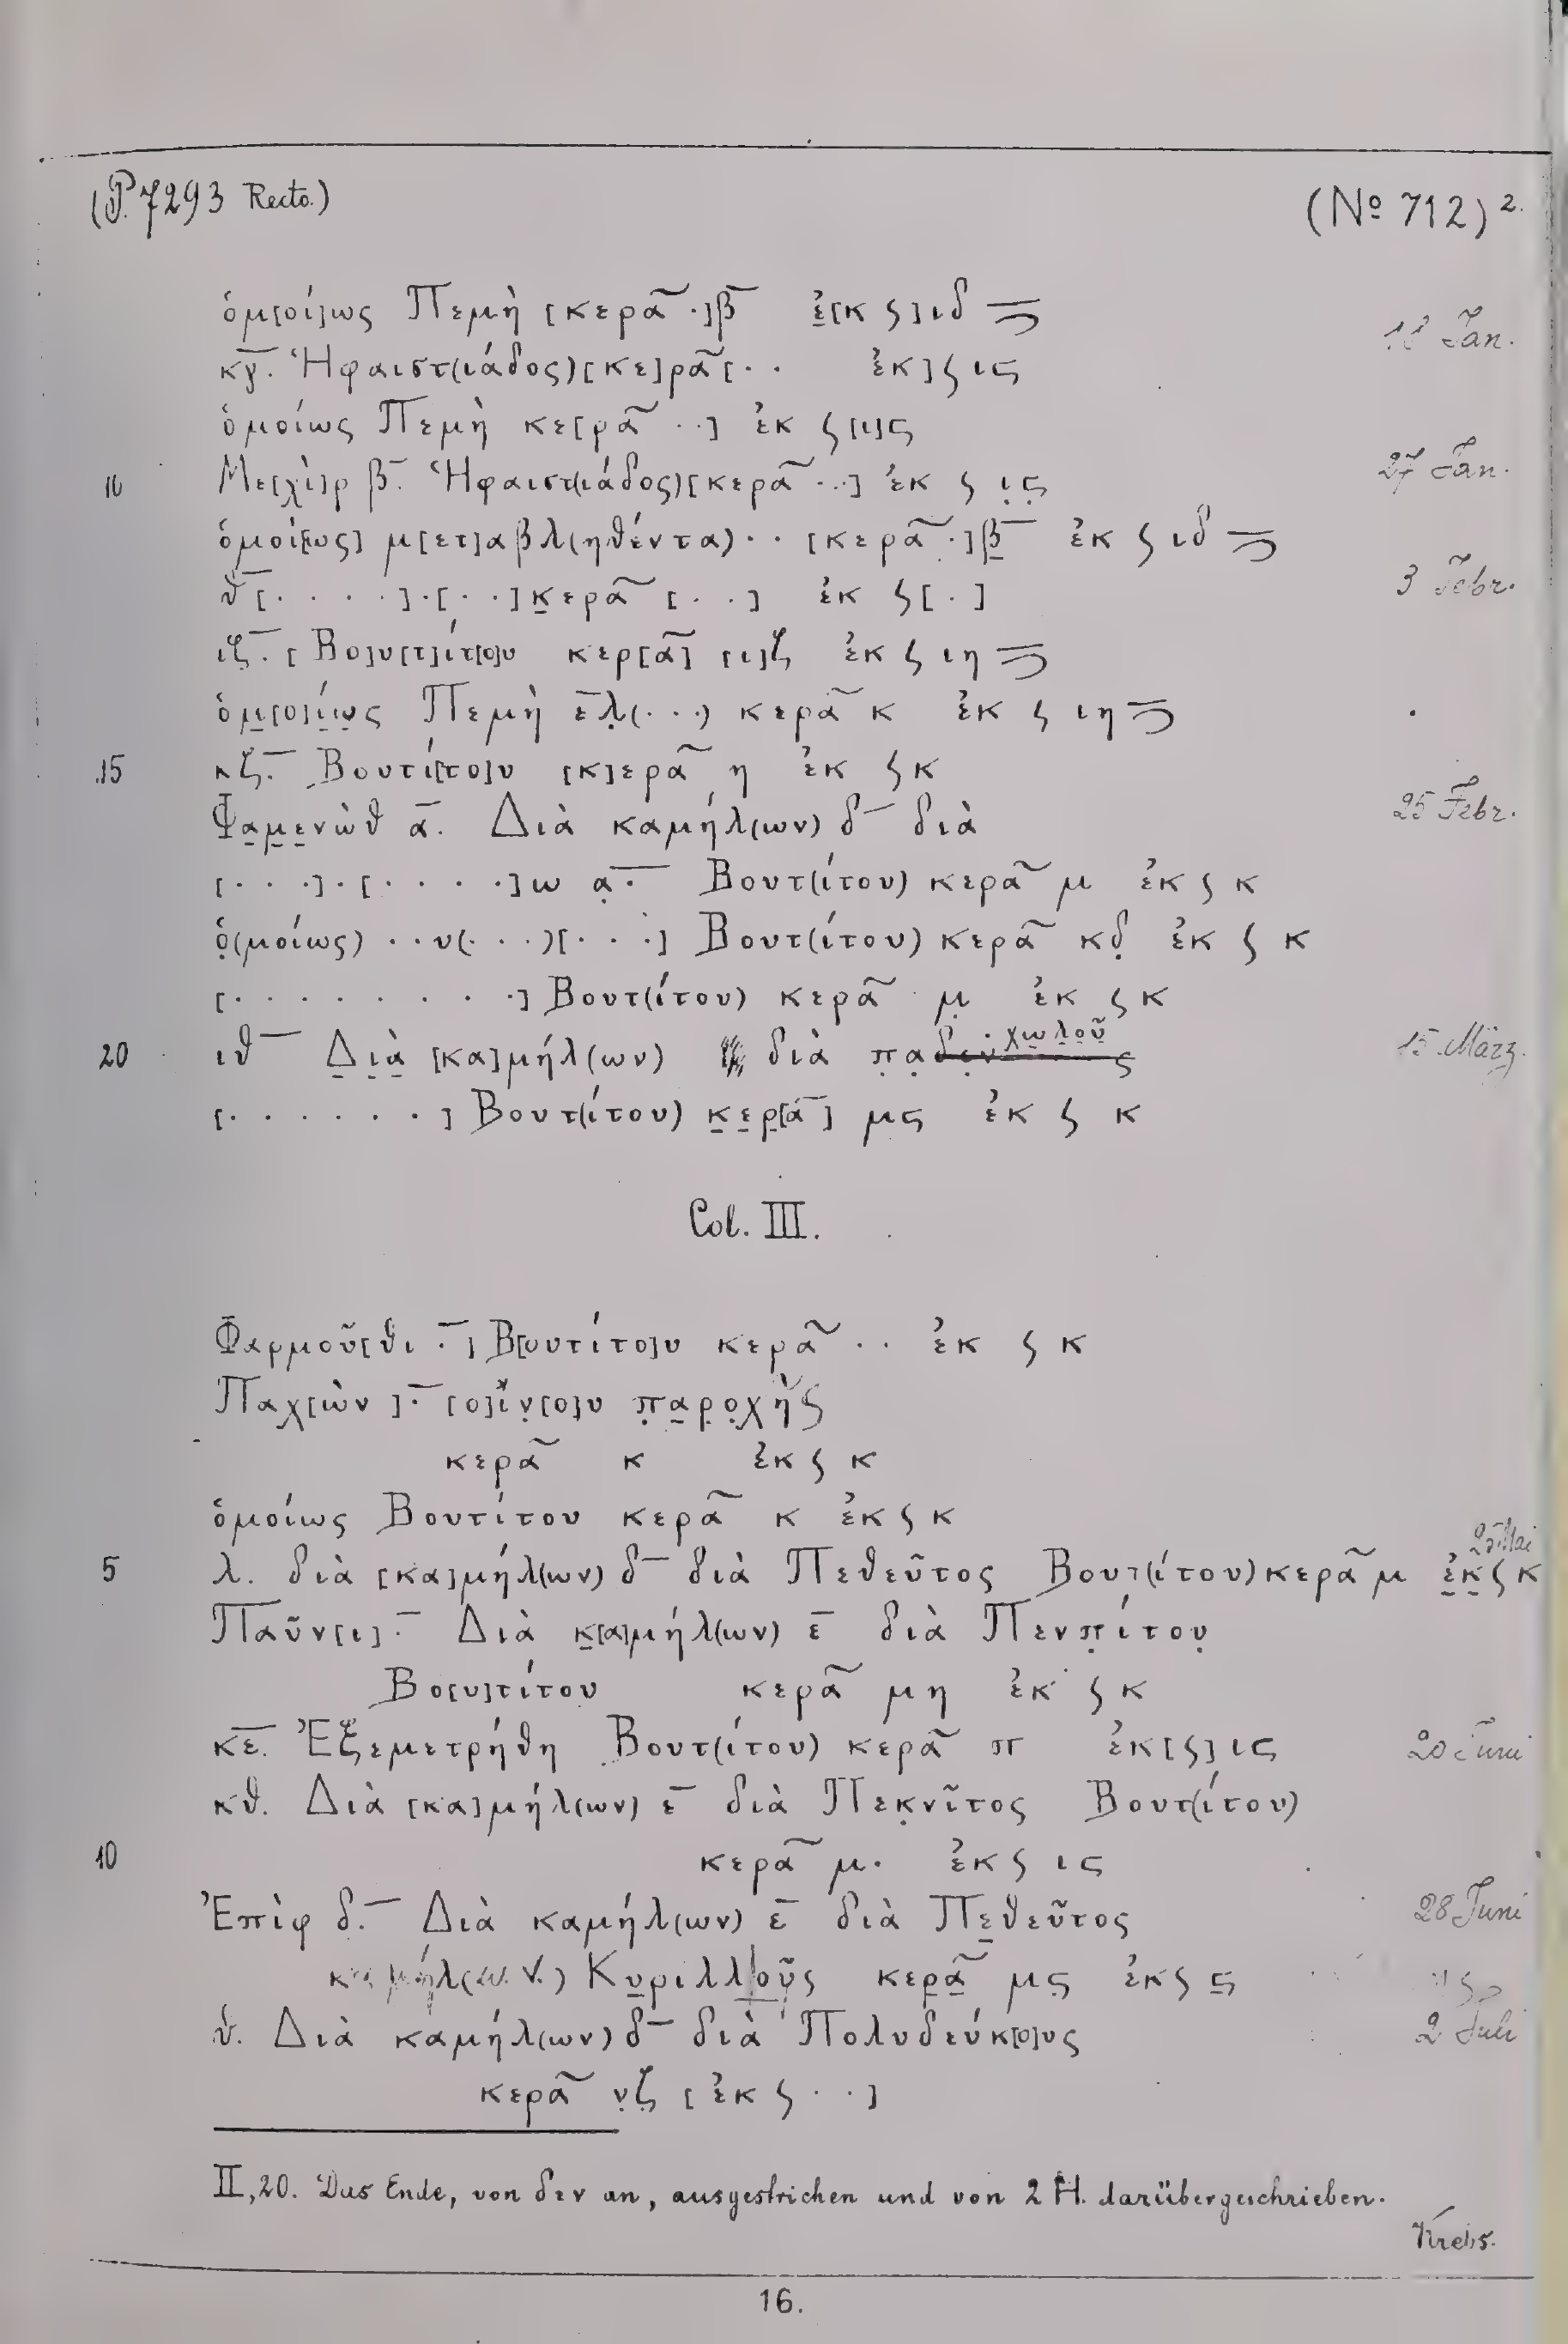 (P. 7293 Recto.) (Nº 712) 2.
ὁμ[οί]ως Πεμὴ [κερᾶ ·]β̅ ἐ̣[κ ϛ] ιδ
κγ̅. Ἡφαιστ(ιάδος) [κε]ρᾶ [· · ἐκ] ϛ ιϛ 18 Jan.
ὁμοίως Πεμὴ κε[ρᾶ ··] ἐκ ϛ [ι]ϛ
10 Με[χὶ]ρ β̅. Ἡφαιστ(ιάδος) [κερᾶ ···] ἐκ ϛ ι̣ϛ̣ 27 Jan.
ὁμοί[ως] μ[ετ]αβλ(ηθέντα) · · [κερᾶ ·]β̣̅ ἐκ ϛ ιδ
θ̅ [· · · ·]·[· ·] κ̣ερᾶ [· · ·] ἐκ ϛ [·] 3 Febr.
ιζ̅. [Βο]υ[τ]ίτ[ο]υ κερ[ᾶ] [ι]ζ ἐκ ϛ ιη
ὁμ̣[ο]ί̣ω̣ς Πεμὴ ε̅λ̣(···) κερᾶ κ ἐκ ϛ ιη
15 κζ̅. Βουτί[το]υ [κ]ερᾶ η ἐκ ϛ κ
Φα̣μ̣ε̣νὼθ α̅. Διὰ καμήλ(ων) δ̅ διὰ 25 Febr.
[· · ·]·[· · · ·]ω α̣·̅ Βουτ(ίτου) κερᾶ μ ἐκ ϛ κ
ὁ̣(μοίως) ··υ(···)[· · ·] Βουτ(ίτου) κερᾶ κδ̣ ἐκ ϛ κ
[· · · · · · · ·] Βουτ(ίτου) κερᾶ μ̣ ἐκ ϛ κ
· χ̣ω̣λ̣ο̣ῦ
20 ιθ̅ Δ̣ι̣ὰ̣ [κα]μήλ(ων) διὰ π̣α̣δε̣ν ς̣ 15 März.
[· · · · · ·] Βουτ(ίτου) κ̣ε̣ρ̣[ᾶ] μϛ ἐκ ϛ κ
Col. III.
Φαρμοῦ[θι ·̅] Β[ουτίτο]υ κερᾶ ·· ἐκ ϛ κ
Παχ[ὼν ]·̅ [ο]ἴν̣[ο]υ π̣α̣ρ̣ο̣χῆς
κερᾶ κ ἐκ ϛ κ
ὁμοίως Βουτίτου κερᾶ κ ἐκ ϛ κ
25 Mai
5 λ. διὰ [κα]μήλ(ων) δ̅ διὰ Πεθεῦτος Βουτ(ίτου) κερᾶ μ ἐ̣κ̣ ϛ κ
Παῦν[ι] ·̅ Διὰ κ̣[α]μήλ(ων) ε̅ διὰ Πενπ̣ίτου̣
Βο[υ]τίτου κερᾶ μη ἐκ ϛ κ
κε̅. Ἐξεμετρήθη Βουτ(ίτου) κερᾶ π ἐκ [ϛ] ιϛ 20 Juni
κθ. Διὰ [κα]μήλ(ων) ε̅ διὰ Πεκ̣νῖτος Βουτ(ίτου)
10 κερᾶ μ· ἐκ ϛ ιϛ
Ἐπὶφ δ̅. Διὰ καμήλ(ων) ε̅ διὰ Πε̣θεῦτος 28 Juni
καμήλ(ων) Κυ̣ριλλοῦ̣ς κερ̣ᾶ̣ μϛ ἐκ ϛ ϛ̣
η̅. Διὰ καμήλ(ων) δ̅ διὰ Πολυδεύκ[ο]υς 2 Juli
κερᾶ ν̣ζ̣ [ἐκ ϛ · ·]
II, 20. Das Ende, von δεν an, ausgestrichen und von 2 H. darübergeschrieben.
Krebs.
16.